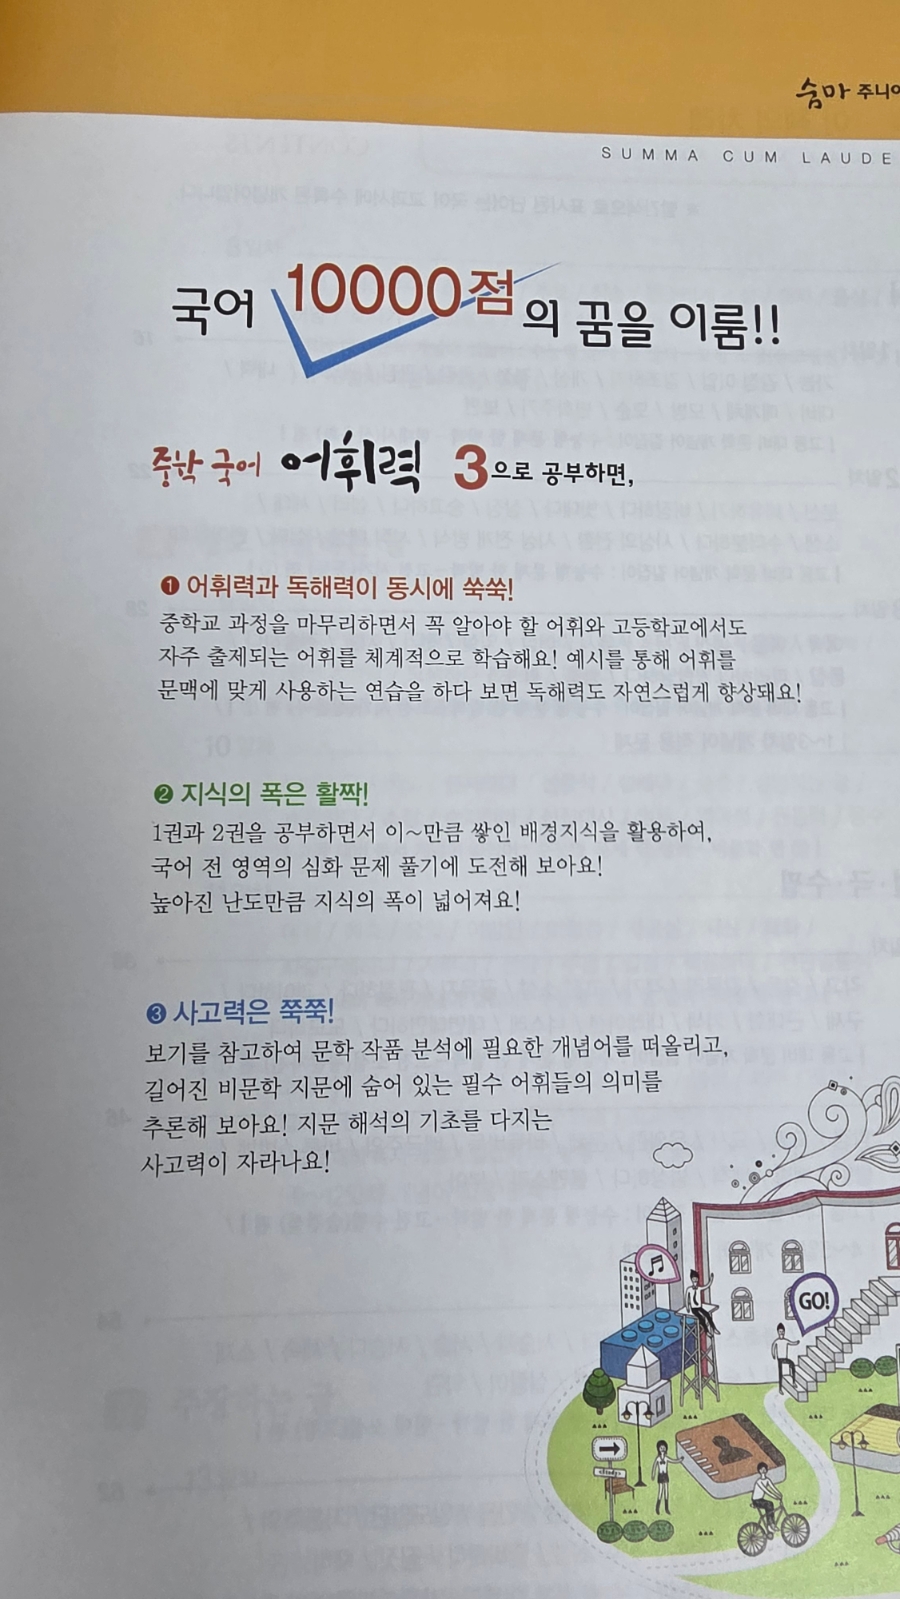 숨마 주니어
SUMMA CUM LAUDE
국어 10000점의 꿈을 이룸!!
중학 국어 어휘력 3으로 공부하면,
❶ 어휘력과 독해력이 동시에 쑥쑥!
중학교 과정을 마무리하면서 꼭 알아야 할 어휘와 고등학교에서도
자주 출제되는 어휘를 체계적으로 학습해요! 예시를 통해 어휘를
문맥에 맞게 사용하는 연습을 하다 보면 독해력도 자연스럽게 향상돼요!
❷ 지식의 폭은 활짝!
1권과 2권을 공부하면서 이~만큼 쌓인 배경지식을 활용하여,
국어 전 영역의 심화 문제 풀기에 도전해 보아요!
높아진 난도만큼 지식의 폭이 넓어져요!
❸ 사고력은 쭉쭉!
보기를 참고하여 문학 작품 분석에 필요한 개념어를 떠올리고,
길어진 비문학 지문에 숨어 있는 필수 어휘들의 의미를
추론해 보아요! 지문 해석의 기초를 다지는
사고력이 자라나요!
GO!